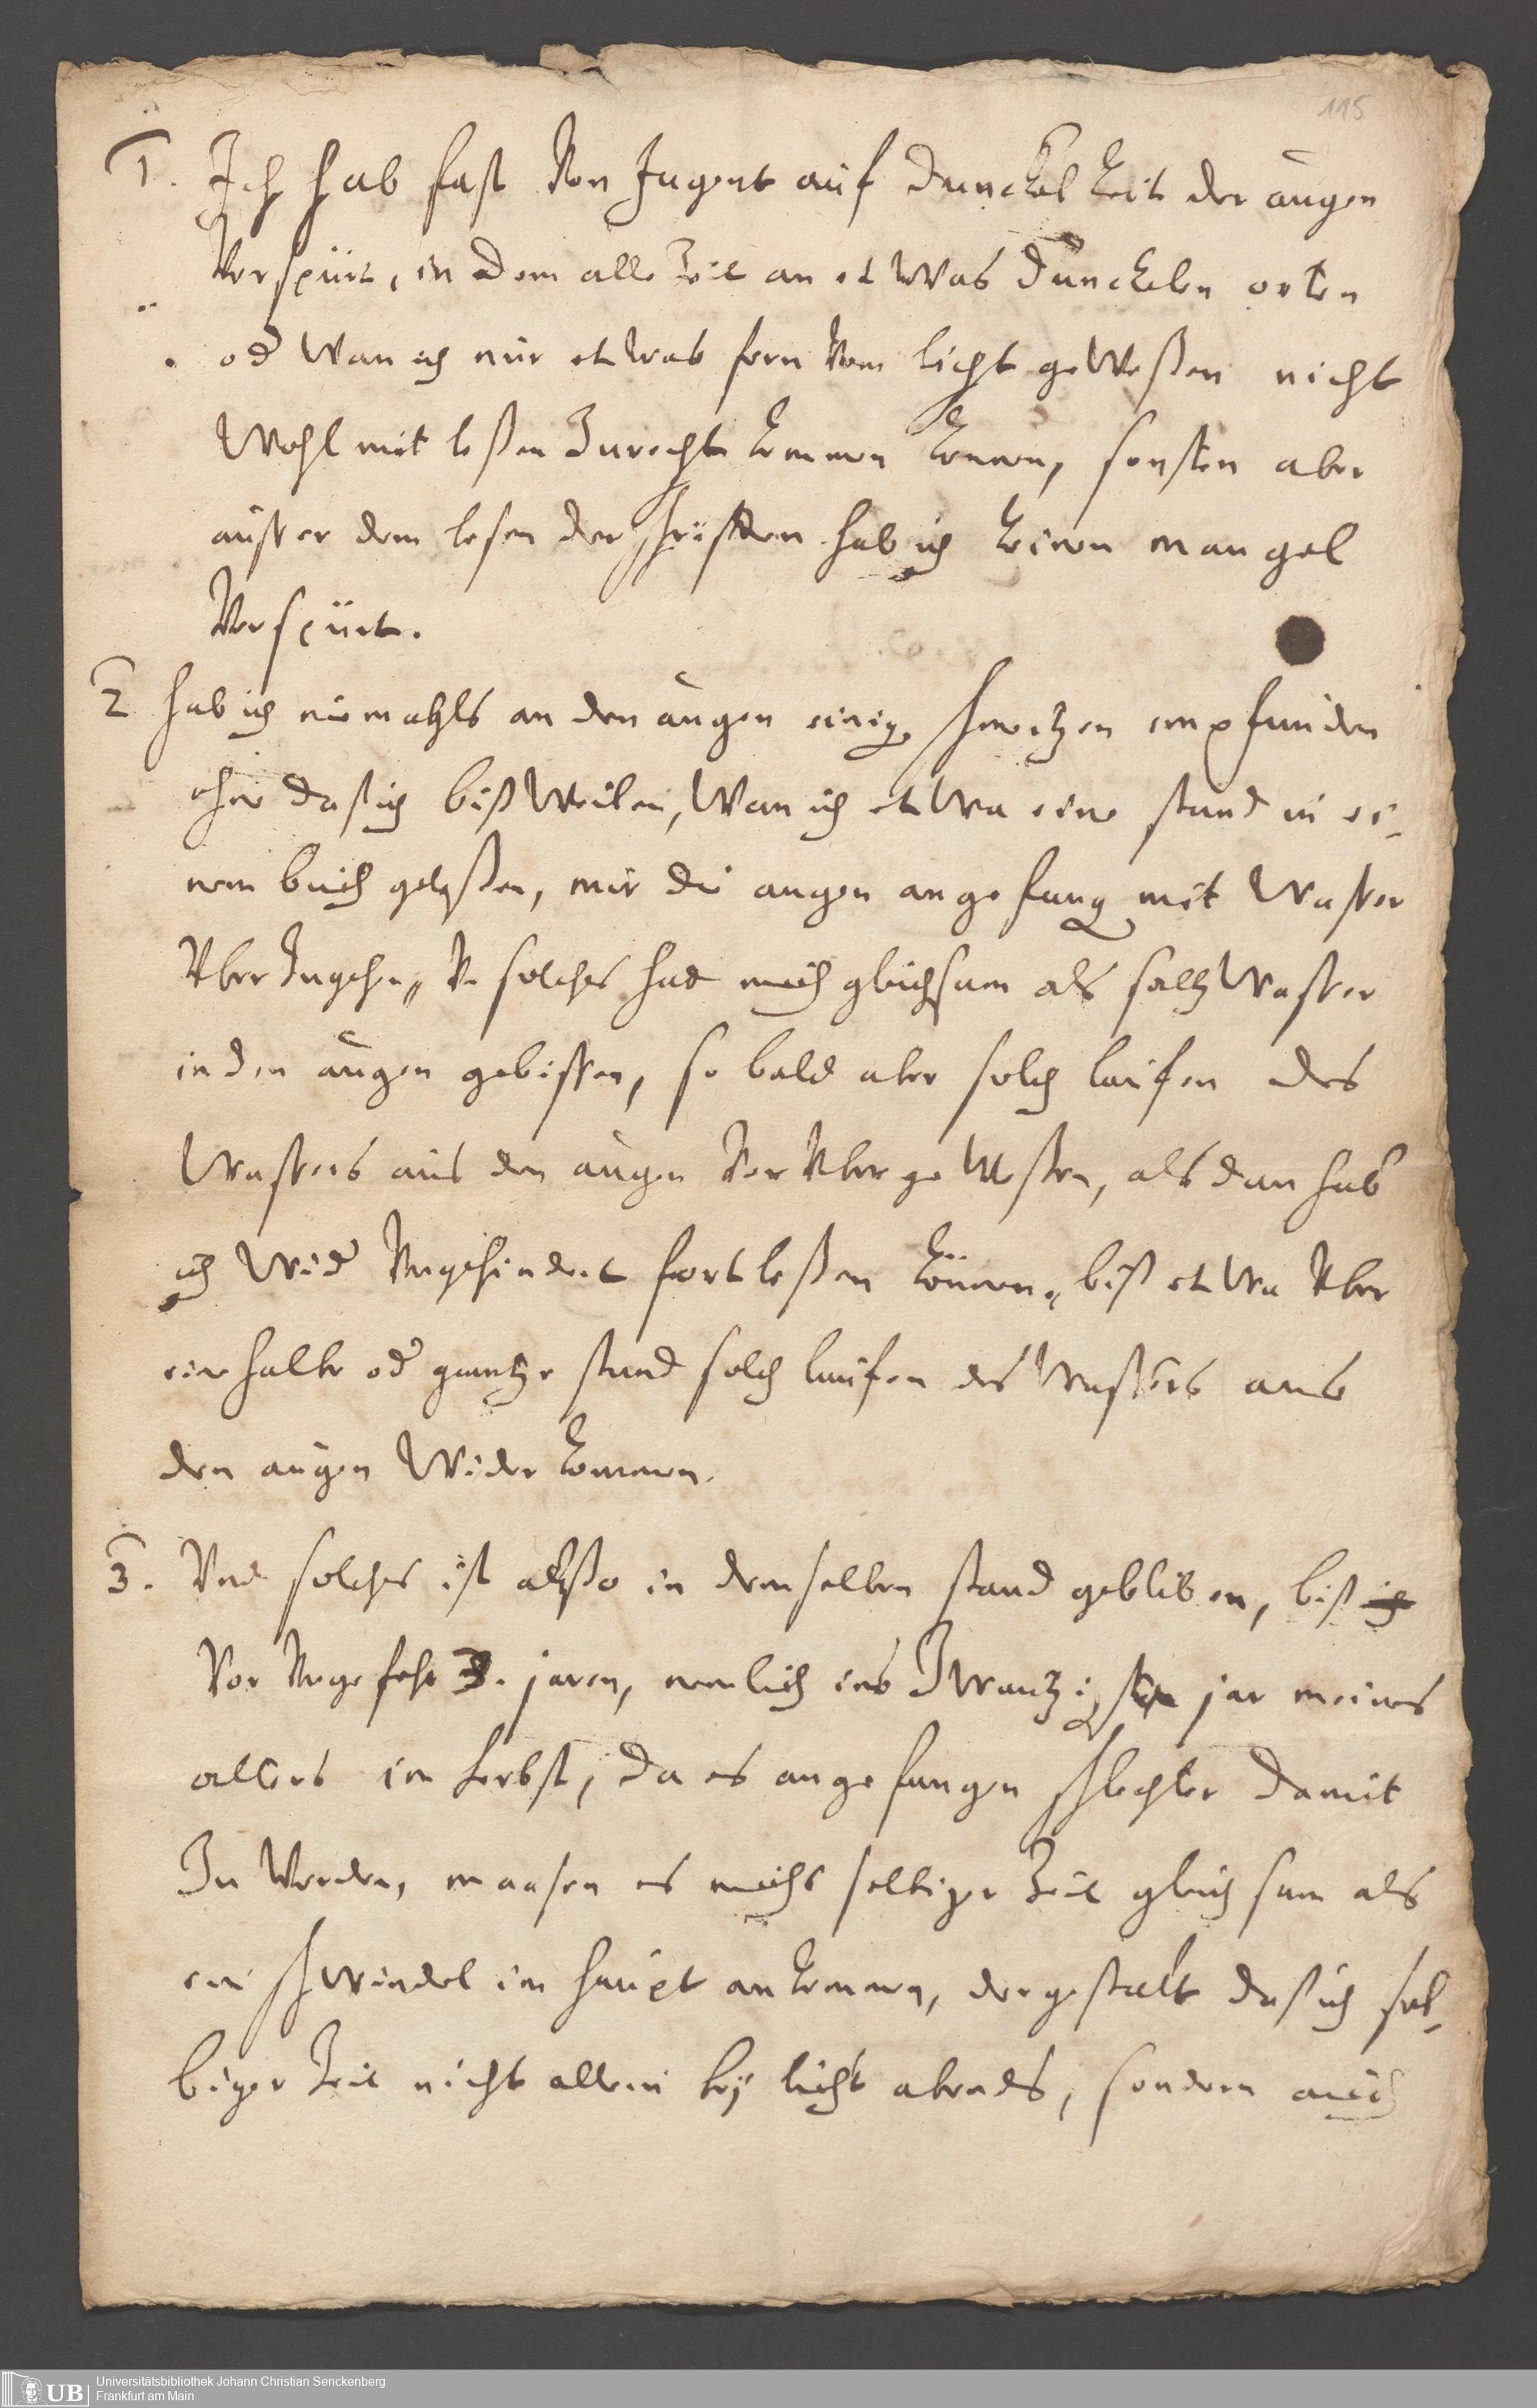 115
1. Ich hab fast Von Jugent auf dunckelheit der augen
Verspürt, in dem alle Zeit an etwas dunckelen orten
od Wan ich nur etwas fern Vom licht geweßen nicht
Wohl mit leßen Zurecht kommen können, sonsten aber
ausser dem lesen der schrifften hab ich keinen mangel
Verspürt.
2 hab ich niemahls an den augen einige schmertzen empfunden
ohne daß ich bißweilen, Wan ich etwa eine stund in ei-
nem buch geleßen, mir die augen angefang mit Wasser
Vber Zugehen, V solches had mich gleichsam als saltz Wasser
in den augen gebissen, so bald aber solch laufen des
Wassers aus den augen Vor Vber geweßen, als dan hab
ich Wider Vngehindert fortleßen können, biß etwa Vber
ein halbe od gantze stund solch laufen des Wassers aus
den augen Wider kommen.
3. Vnd solches ist alßo in demselben stand gebliben, biß ich
Vor Vngefehr 3. jaren, nemlich ins Zwantzigste jar meines
alters im herbst, da es angefangen schlechter damit
Zu Werden, maasen es michs selbiger Zeit gleichsam als
ein schwindel im haupt ankommen, dergestalt daß ich sel-
biger Zeit nicht allein bej licht abends, sondern auch
UB Universitätsbibliothek Johann Christian Senckenberg
Frankfurt am Main